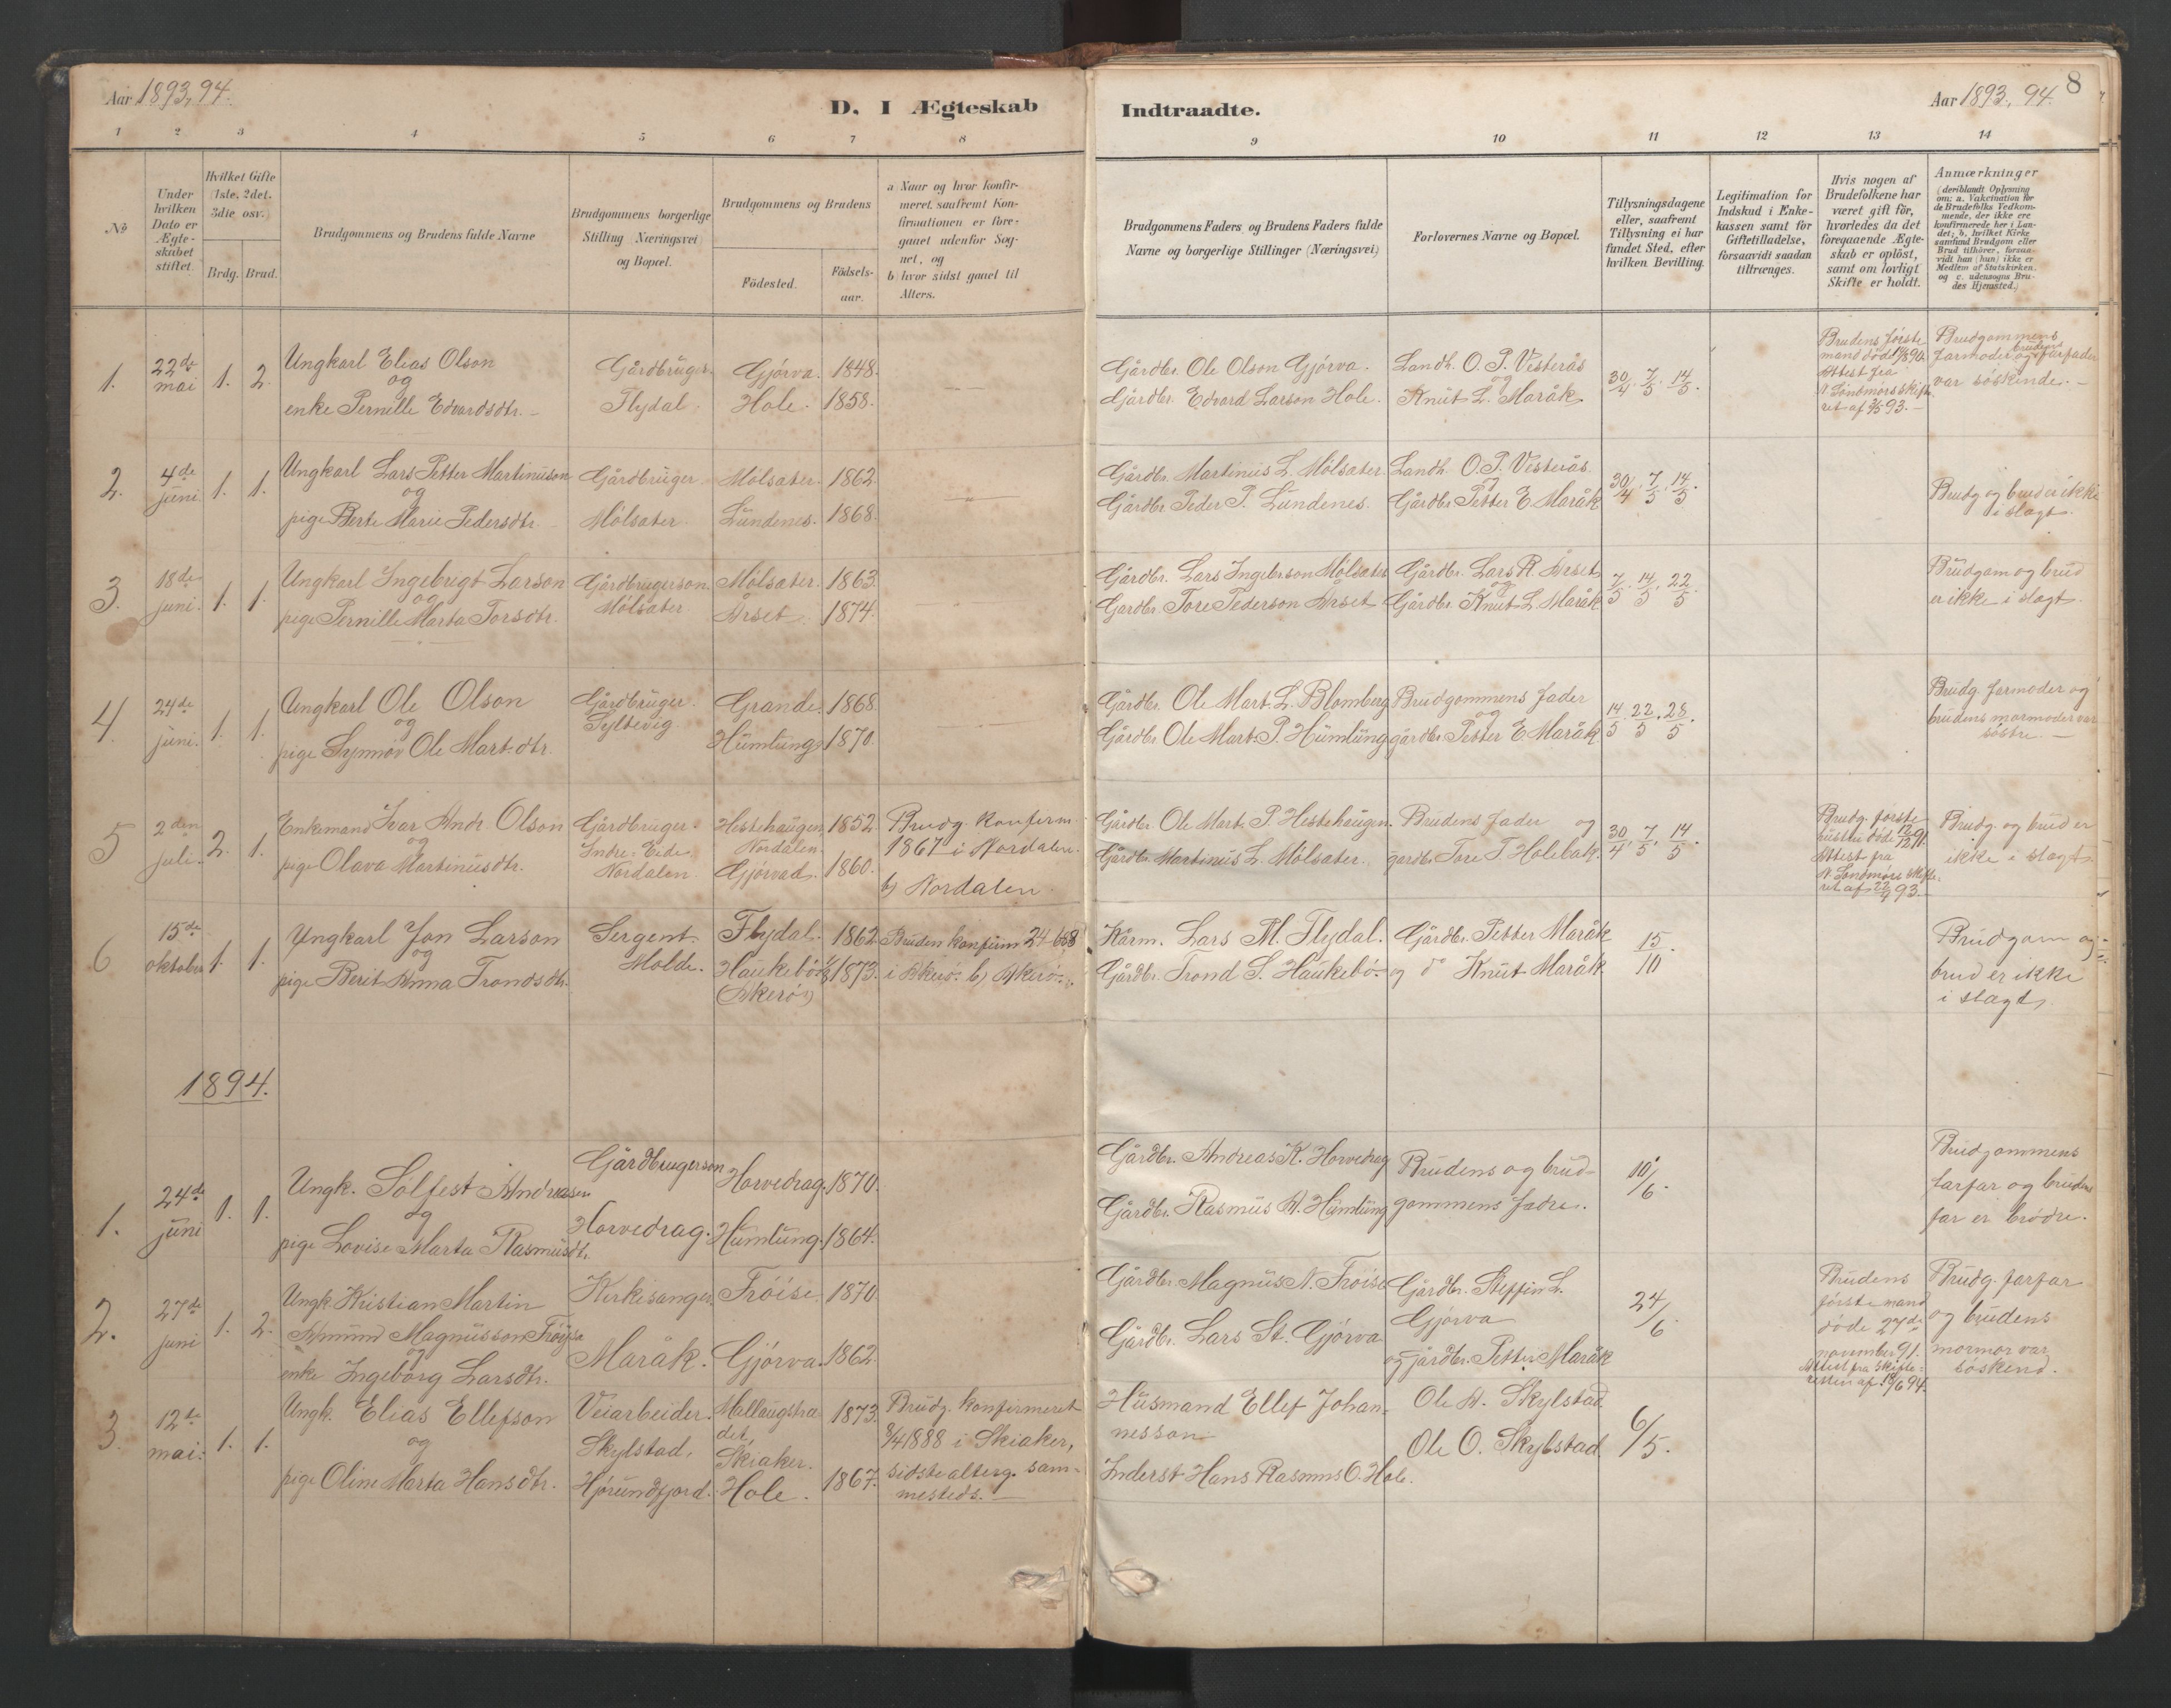 Aar 1893, 94.
D. I Ægteskab Indtraadte.
Aar 1893, 94.
8
1 2 3 4 5 6 7 8 9 10 11 12 13 14
No
Under hvilken Dato er Ægteskabet stiftet.
Hvilket Gifte (1ste, 2det, 3die osv.)
Brdg. Brud.
Brudgommens og Brudens fulde Navne
Brudgommens borgerlige Stilling (Næringsvei) og Bopæl.
Brudgommens og Brudens
Fødested.
Fødsels-aar.
a Naar og hvor konfirmeret, saafremt Konfirmationen er foregaaet udenfor Sognet, og
b hvor sidst gaaet til Alters.
Brudgommens Faders og Brudens Faders fulde Navne og borgerlige Stillinger (Næringsvei)
Forlovernes Navne og Bopæl.
Tillysningsdagene eller, saafremt Tillysning ei har fundet Sted, efter hvilken Bevilling.
Legitimation for Indskud i Enkekassen samt for Giftetilladelse, forsaavidt saadan tiltrænges.
Hvis nogen af Brudefolkene har været gift før, hvorledes da det foregaaende Ægteskab er opløst, samt om lovligt Skifte er holdt.
Anmærkninger
(deriblandt Oplysning om: a. Vakcination for de Brudefolks Vedkommende, der ikke ere konfirmerede her i Landet; b. hvilket Kirkesamfund Brudgom eller Brud tilhører, forsaavidt han (hun) ikke er Medlem af Statskirken, og c. udensogns Brudes Hjemsted.)
1. 22de mai 1. 2.
Ungkarl Elias Olson
og
enke Pernille Edvardsdtr. -
Gårdbruger.
Flydal.
Gjörva. 1848.
Hole. 1858.
Gårdbr. Ole Olson Gjörva.
Gårdbr. Edvard Larson Hole.
Landh. O. P. Vesterås
og
Knut L. Maråk.
30/4. 7/5. 14/5.
Brudens förste
mand döde
Attest fra
N. Söndmörs skifte-
ret af 93. -
Brudgommens
farmoder og brudens farfader
var söskende. -
2. 4de juni. 1. 1.
Ungkarl Lars Petter Martinuson
og
pige Berte Marie Pedersdtr.
Gårdbruger.
Mölsater.
Mölsater. 1862.
Lundenes. 1868.
Gårdbr. Martinus L. Mölsater.
Gårdbr. Peder P. Lundenes.
Landh. O. P. Vesterås.
og
Gårdbr. Petter E. Maråk
30/4. 7/5. 14/5.
Brudg og brud er ikke
i slagt.
3. 18de juni. 1. 1.
Ungkarl Ingebrigt Larson
og
pige Pernille Marta Torsdtr.
Gårdbrugerson.
Mölsater
Mölsater. 1863.
Årset. 1874.
Gårdbr. Lars Ingebrson Mölsater
Gardbr. Tore Pederson Årset
Gårdbr. Lars R. Årset
og
Gårdbr. Knut L. Maråk
7/5. 14/5. 22/5
Brudgom og brud
er ikke i slagt.
4. 24de juni. 1. 1.
Ungkarl Ole Olson
og
pige Synnöv Ole Mart.dtr.
Gårdbruger.
Syltevig.
Grande. 1868
Humlung. 1870.
Gårdbr. Ole Mart. L. Blomberg
Gårdbr. Ole Mart. P. Humlung
Brudgommens fader
og
gårdbr. Petter E. Maråk
14/5. 22/5. 28/5.
Brudg. farmoder og
brudens mormoder var
söstre. -
5 2den juli. 2. 1.
Enkemand Ivar Andr. Olson
og
pige Olava Martinusdtr.
Gårdbruger.
Indre-Eide
Nordalen
Hestehaugen, 1852.
Nordalen.
Gjörvad. 1860.
Brudg. konfirm.
1867 i Nordalen.
b) Nordalen.
Gårdbr. Ole Mart. P. Hestehaugen.
Gårdbr. Martinus L. Mölsater.
Brudens fader og
gardbr. Tore T. Holebak.
30/4. 7/5. 14/5.
Brudg. förste
hustru döde 12/12 91.
Attest fra
N. Söndmörs skifte-
ret af 22/4 93.
Brudg. og brud er
ikke i slagt.
6 15de oktober 1. 1.
Ungkarl Jon Larson
og
pige Berit Anna Trondsdtr.
Sergent
Molde.
Flydal. 1862
Haukebö 1873.
(Akerö)
Bruden konfirm 24
i Akerö. b) Akerö.
Kårm. Lars M. Flydal.
Gårdbr. Trond S. Haukebö.
Gårdbr. Petter Maråk
og do Knut Maråk
15/10.
Brudgom og
brud er ikke
i slagt.
1894.
1. 24de juni 1. 1.
Ungk. Sölfest Andreasen
og
pige Lovise Marta Rasmusdtr.
Gårdbrugerson
Horvedrag.
Horvedrag. 1870.
Humlung. 1864.
Gårdbr. Andreas K. Horvedrag
Gårdbr. Rasmus A. Humlung
Brudens og brud-
gommens fadre.
10/6.
Brudgommens
farfar og brudens
far er brödre.
2. 27de juni 1. 2.
Ungk. Kristian Martin
Amund Magnusson Tröyse
og
enke Ingeborg Larsdtr.
Kirkesanger.
Maråk.
Tröise. 1870
Gjörva. 1862.
Gårdbr. Magnus N. Tröise
Gårdbr. Lars St. Gjörva
Gårdbr. Steffen L.
Gjörva
og gårdbr. Petter Maråk
24/6
Brudens
förste mand
döde 27de
november 91.
Attest fra skifte-
retten af 18/6 94.
Brudg. farfar
og brudens
mormor var
söskend.
3. 12te mai. 1. 1.
Ungk. Elias Ellefson
og
pige Oline Marta Hansdtr.
Veiarbeider.
Skylstad,
Hjörundfjord.
Mellaugstra- 1873.
det,
Skiaker.
Hole. 1867.
Brudg. konfirmeret
8/4 1888 i Skiaker,
sidste alterg. sam-
mesteds. -
Husmand Ellef Johan-
nesson
Inderst Hans Rasmus O. Hole.
Ole A. Skylstad
Ole O. Skylstad
6/5.